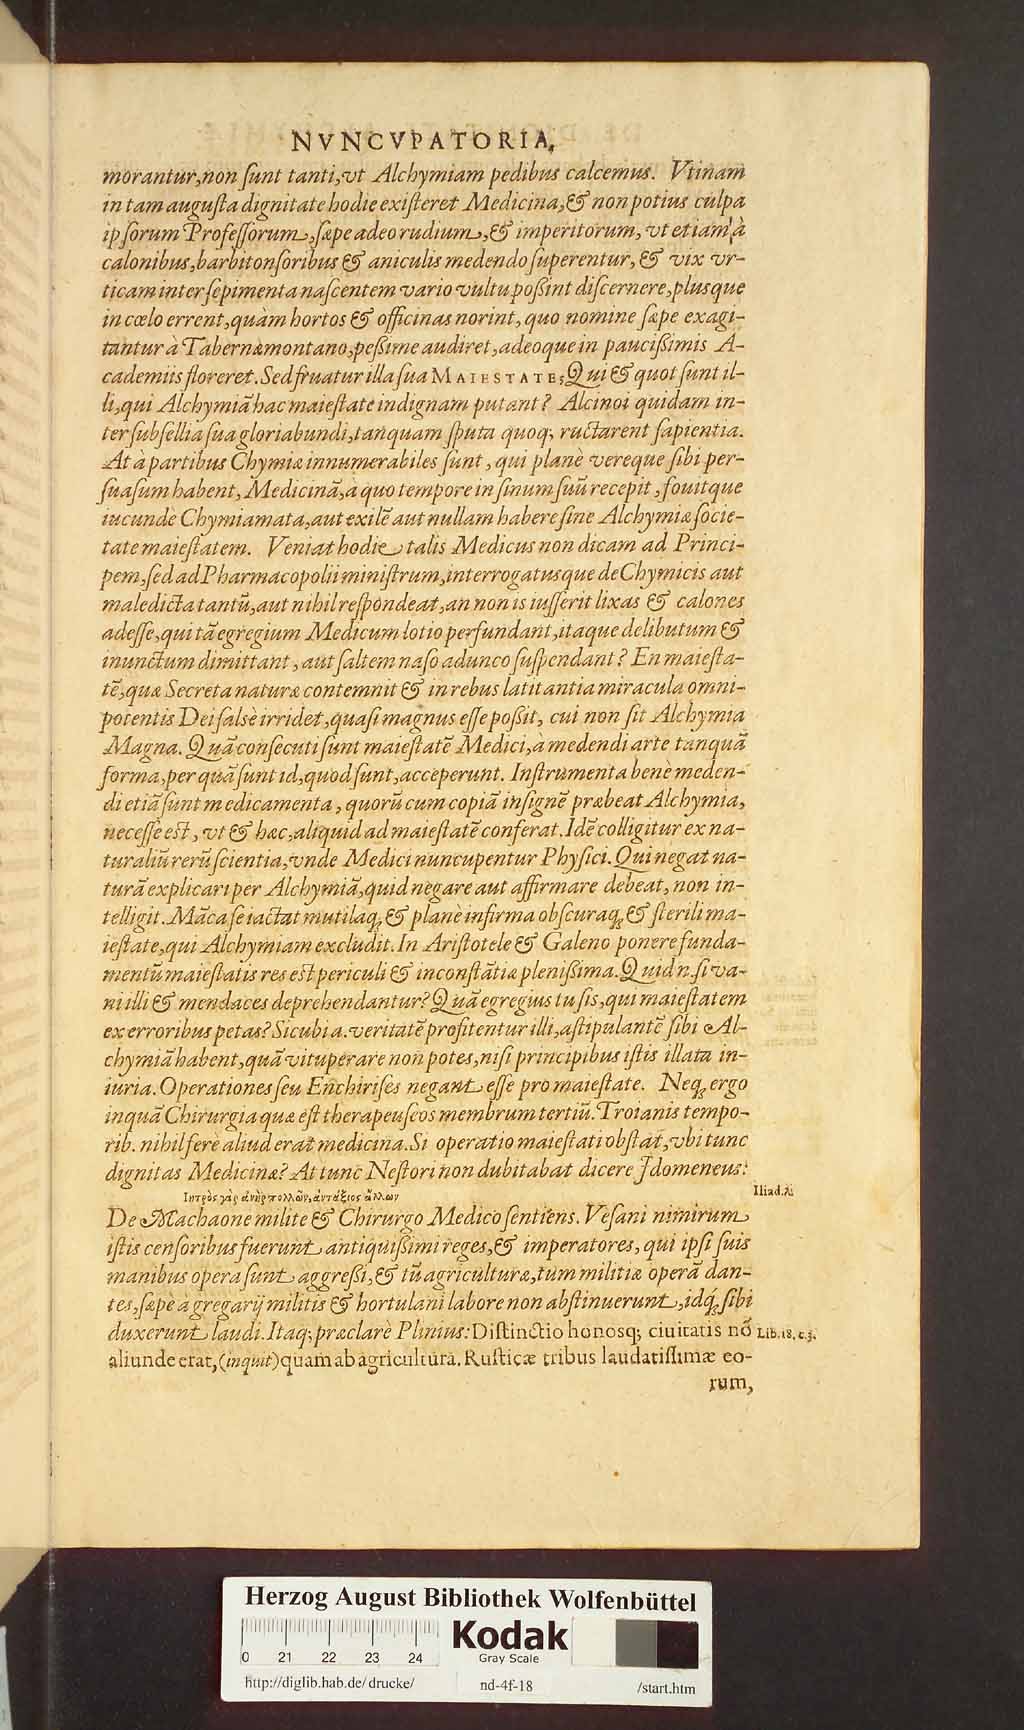 NVNCVPATORIA.
morantur, non ſunt tanti, vt Alchymiam pedibus calcemus. Vtinam
in tam auguſta dignitate hodie exiſteret Medicina, & non potius culpa
ipſorum Profeſſorum, ſæpe adeo rudium, & imperitorum, vt etiam à
calonibus, barbitonſoribus & aniculis medendo ſuperentur, & vix vr-
ticam inter ſepimenta naſcentem vario vultu poßint diſcernere, plusque
in cœlo errent, quàm hortos & officinas norint, quo nomine ſæpe exagi-
tantur à Tabernæmontano, peßime audiret, adeoque in pauciſſimis A-
cademiis floreret. Sed fruatur illa ſua MAIESTATE; Qui & quot ſunt il-
li, qui Alchymiā hac maieſtate indignam putant? Alcinoi quidam in-
ter ſubſellia ſua gloriabundi, tanquam ſputa quoq; ructarent ſapientia.
At à partibus Chymiæ innumerabiles ſunt, qui planè vereque ſibi per-
ſuaſum habent, Medicinā, à quo tempore in ſinum ſuū recepit, fouitque
iucundè Chymiamata, aut exilē aut nullam habere ſine Alchymiæ ſocie-
tate maieſtatem. Veniat hodie talis Medicus non dicam ad Princi-
pem, ſed ad Pharmacopolii miniſtrum, interrogatusque de Chymicis aut
maledicta tantū, aut nihil reſpondeat, an non is iuſſerit lixas & calones
adeſſe, qui tā egregium Medicum lotio perfundant, itaque delibutum &
inunctum dimittant, aut ſaltem naſo adunco ſuſpendant? En maieſta-
tē, quæ Secreta naturæ contemnit & in rebus latitantia miracula omni-
potentis Dei falsè irridet, quaſi magnus eſſe poßit, cui non ſit Alchymia
Magna. Quā conſecuti ſunt maieſtatē Medici, à medendi arte tanquā
forma, per quā ſunt id, quod ſunt, acceperunt. Inſtrumenta benè meden-
di etiā ſunt medicamenta, quorū cum copiā inſignē præbeat Alchymia,
neceſſe eſt, vt & hæc, aliquid ad maieſtatē conferat. Idē colligitur ex na-
turaliū rerū ſcientia, vnde Medici nuncupentur Phyſici. Qui negat na-
turā explicari per Alchymiā, quid negare aut affirmare debeat, non in-
telligit. Māca ſe iactat mutilaq; & planè infirma obſcuraq; & ſterili ma-
ieſtate, qui Alchymiam excludit. In Ariſtotele & Galeno ponere funda-
mentū maieſtatis res eſt periculi & inconſtātiæ pleniſſima. Quid n. ſi va-
ni illi & mendaces deprehendantur? Quā egregius tu ſis, qui maieſtatem
ex erroribus petas? Sicubi a. veritatē profitentur illi, aſtipulantē ſibi Al-
chymiā habent, quā vituperare non potes, niſi principibus iſtis illata in-
iuria. Operationes ſeu Enchiriſes negant eſſe pro maieſtate. Neq; ergo
inquā Chirurgia quæ eſt therapeuſeos membrum tertiū. Troianis tempo-
rib. nihil ferè aliud erat medicina. Si operatio maieſtati obſtat, vbi tunc
dignitas Medicinæ? At tunc Neſtori non dubitabat dicere Idomeneus:
Ἰητρὸς γὰρ ἀνὴρ πολλῶν, ἀντάξιος ἄλλων
Iliad. λ.
De Machaone milite & Chirurgo Medico ſentiens. Veſani nimirum
iſtis cenſoribus fuerunt antiquiſſimi reges, & imperatores, qui ipſi ſuis
manibus opera ſunt aggreſſi, & tū agriculturæ, tum militiæ operā dan-
tes, ſæpè à gregarij militis & hortulani labore non abſtinuerunt, idq́; ſibi
duxerunt laudi. Itaq; præclarè Plinius: Diſtinctio honosq; ciuitatis nō
Lib. 18. c. 3.
aliunde erat, (inquit) quàm ab agricultura. Ruſticæ tribus laudatiſſimæ eo-
rum,
Herzog August Bibliothek Wolfenbüttel
0 21 22 23 24
Kodak
Gray Scale
http://diglib.hab.de/drucke/ nd-4f-18 /start.htm